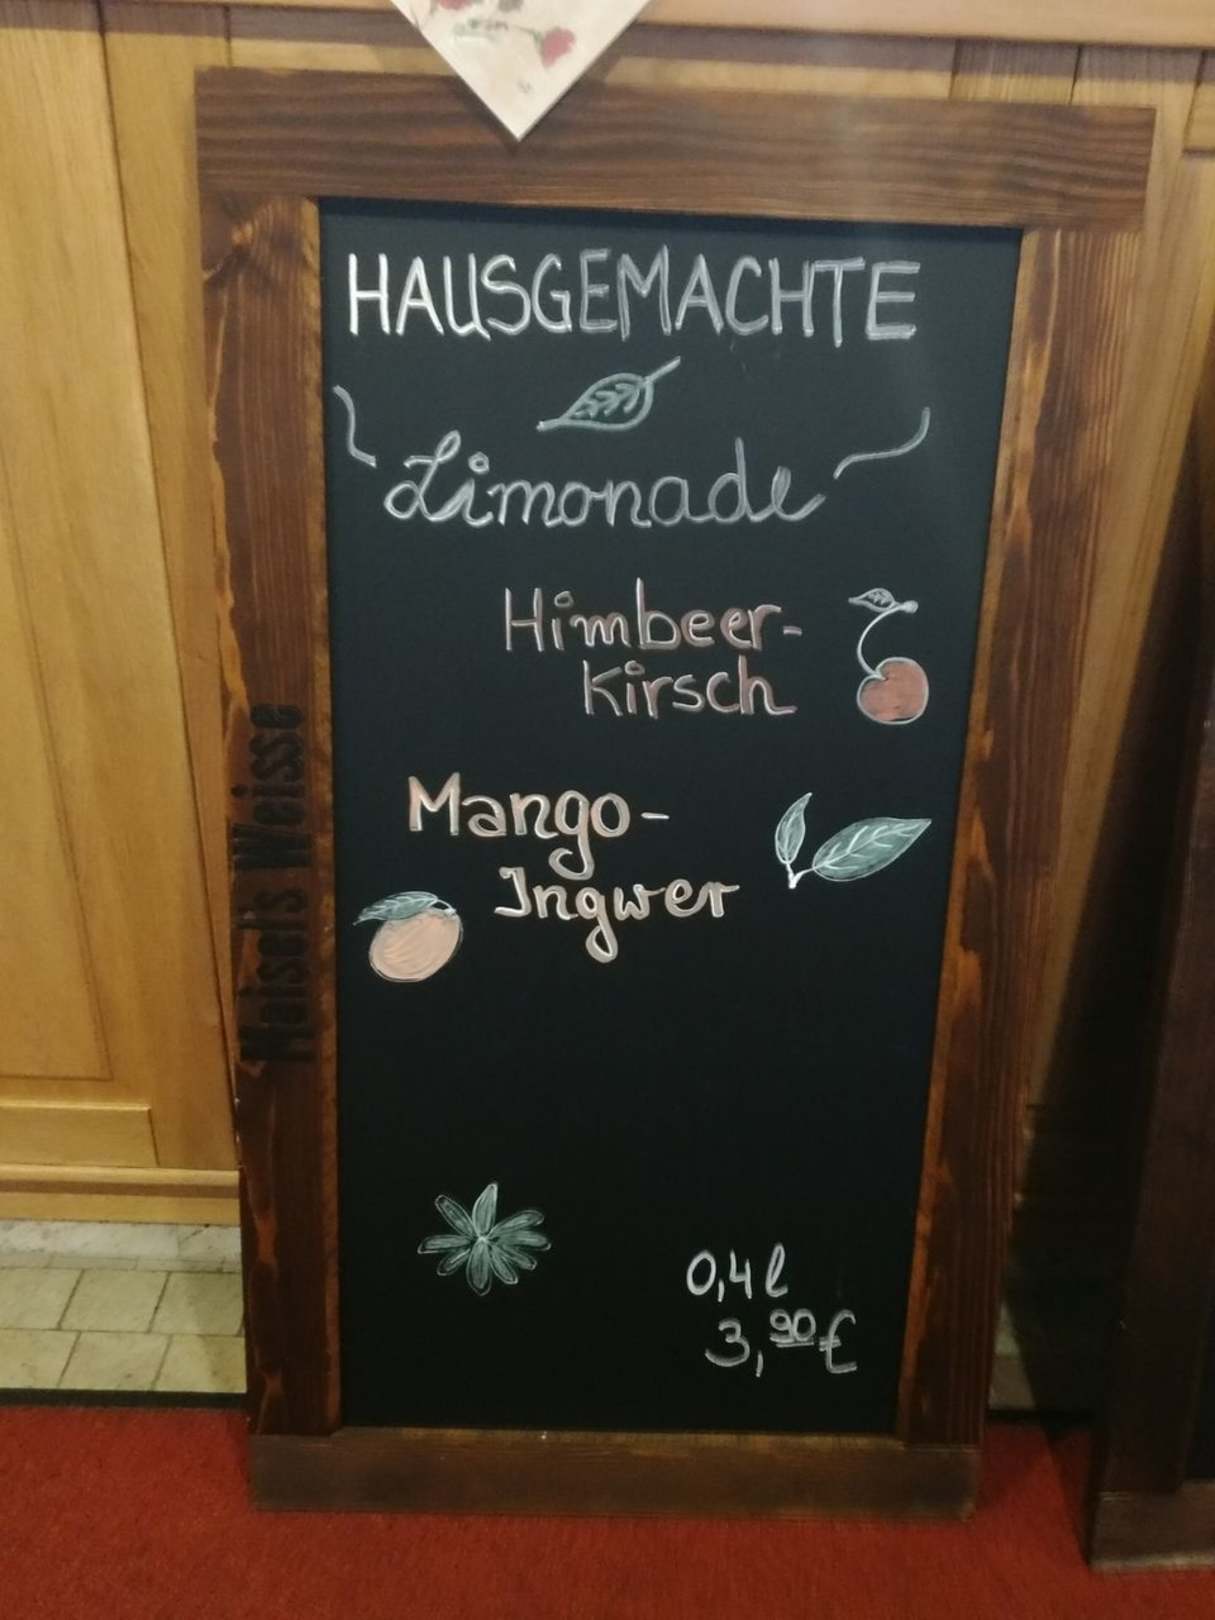 HAUSGEMACHTE
Limonade
Himbeer-
Kirsch
Mango-
Ingwer
0,4 l
3,90 €
Maisel's Weisse